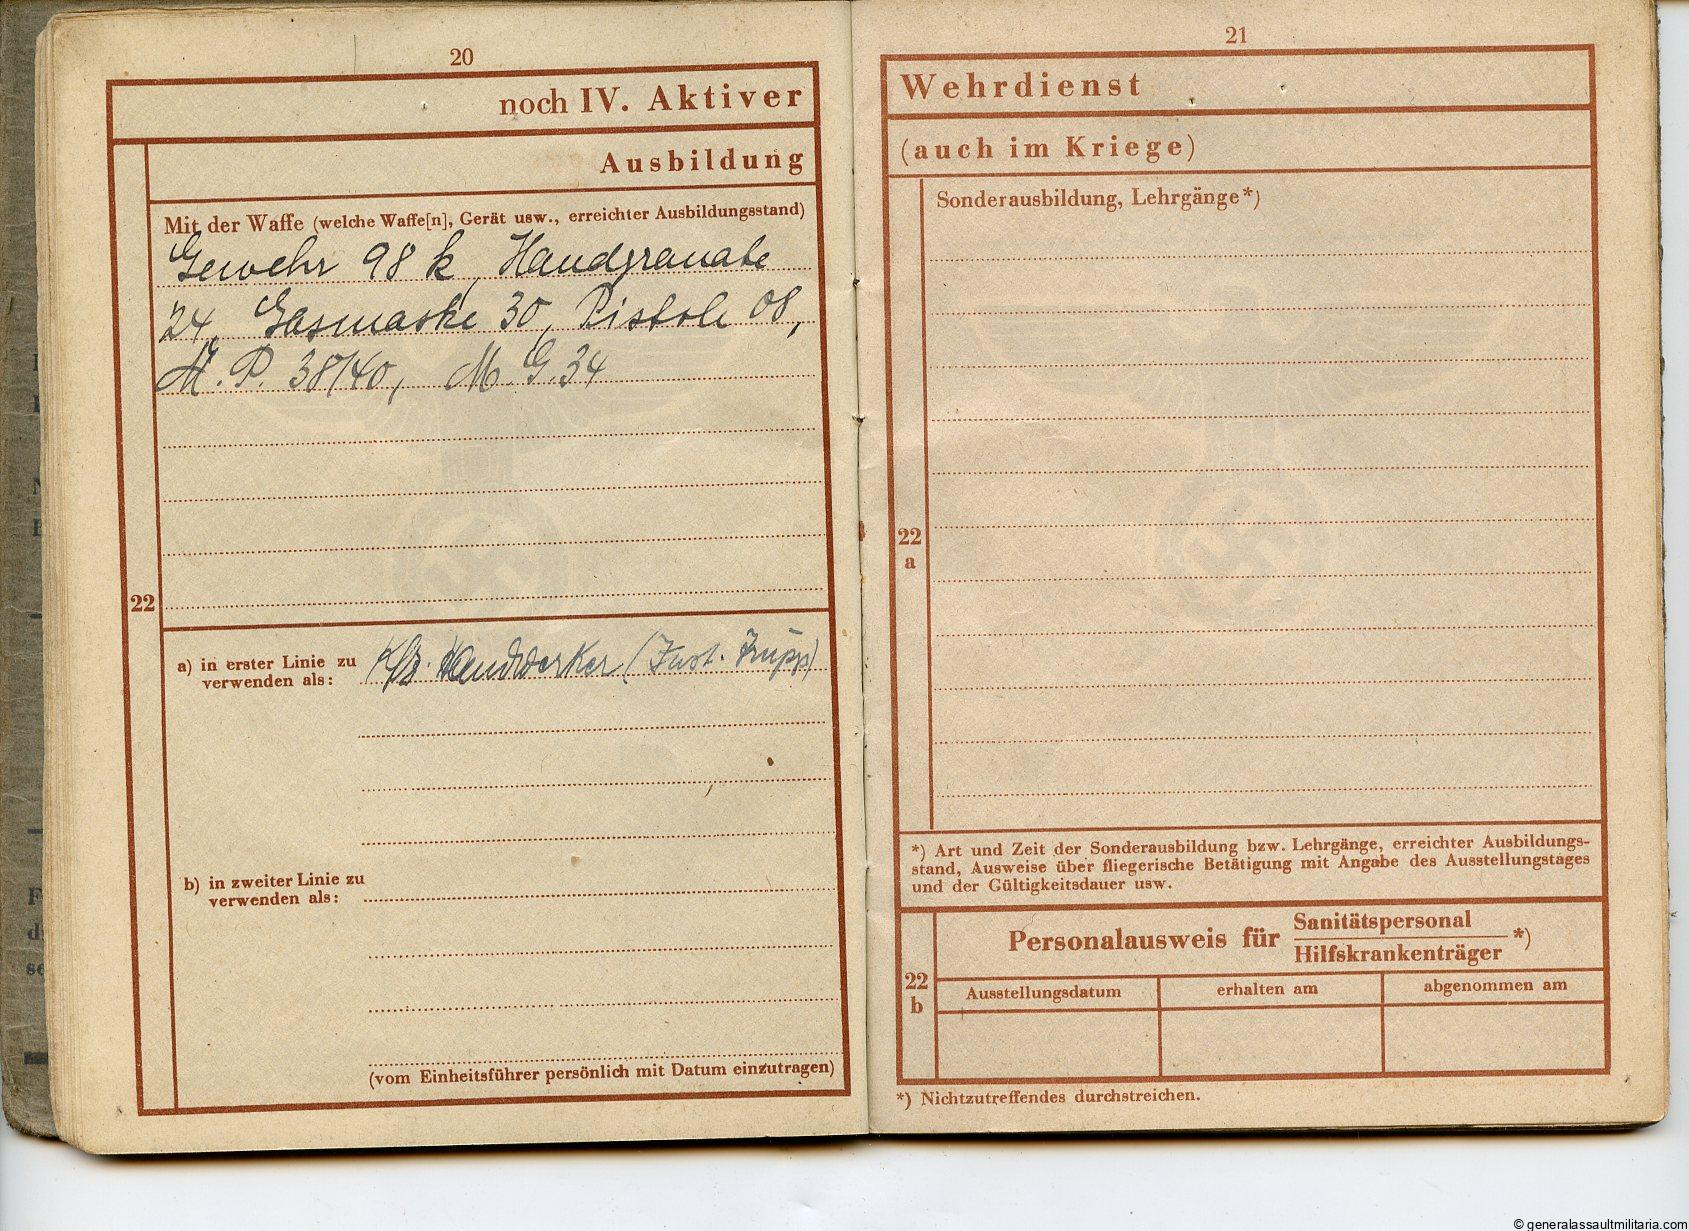 20
noch IV. Aktiver
Ausbildung
Mit der Waffe (welche Waffe[n], Gerät usw., erreichter Ausbildungsstand)
Gewehr 98 k, Handgranate
24, Gasmaske 30, Pistole 08,
M.P. 38/40, M.G.34
22
a) in erster Linie zu
verwenden als:
Kfz. Handwerker (Inst. Trupp)
b) in zweiter Linie zu
verwenden als:
(vom Einheitsführer persönlich mit Datum einzutragen)
21
Wehrdienst
(auch im Kriege)
Sonderausbildung, Lehrgänge*)
22
a
*) Art und Zeit der Sonderausbildung bzw. Lehrgänge, erreichter Ausbildungs-
stand, Ausweise über fliegerische Betätigung mit Angabe des Ausstellungstages
und der Gültigkeitsdauer usw.
22
b
Personalausweis für Sanitätspersonal *)
Hilfskrankenträger
Ausstellungsdatum erhalten am abgenommen am
*) Nichtzutreffendes durchstreichen.
© generalassaultmilitaria.com